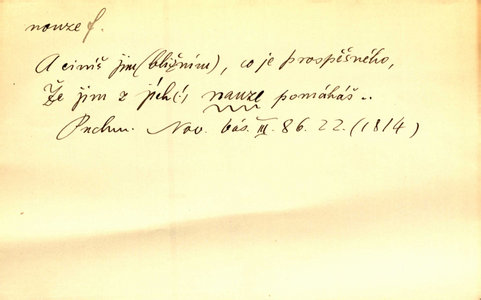 nouze f.
A činíš jim (bližním), co je prospěšného,
Že jim z jich (!) nauze pomáháš ..
Puchm. Nov. bás. III. 86. 22. (1814)